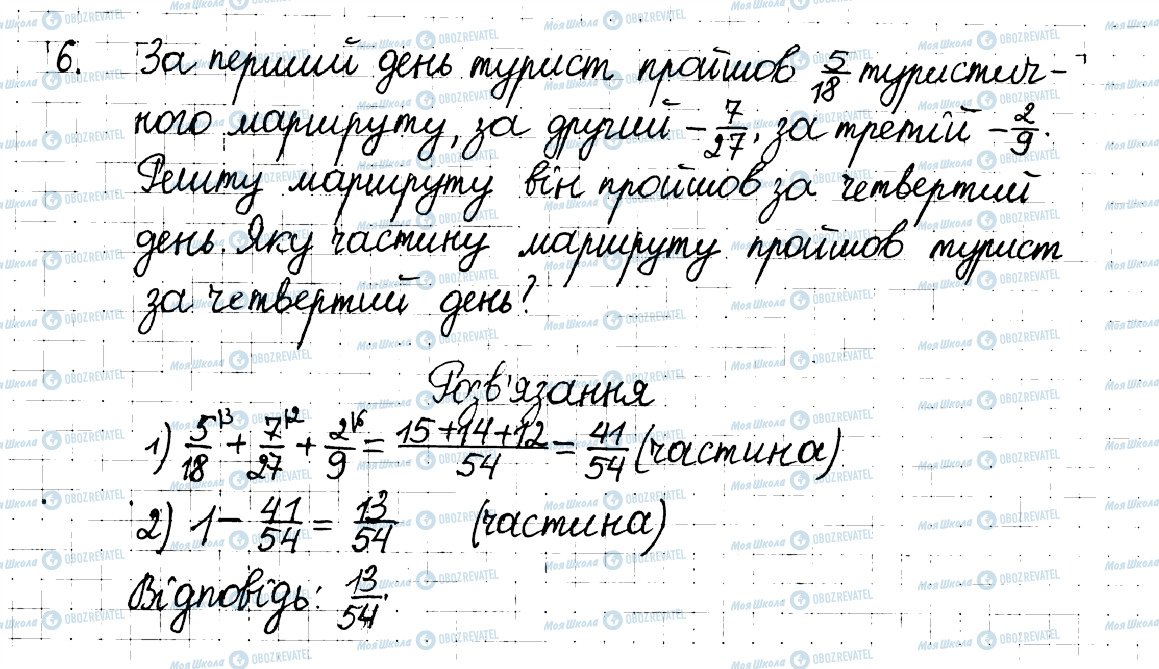 6. За перший день турист пройшов 5/18 туристич-
ного маршруту, за другий – 7/27, за третій – 2/9.
Решту маршруту він пройшов за четвертий
день. Яку частину маршруту пройшов турист
за четвертий день?
Розв'язання
1) 5/18 |3 + 7/27 |2 + 2/9 |6 = 15+14+12/54 = 41/54 (частина)
2) 1 – 41/54 = 13/54 (частина)
Відповідь: 13/54.